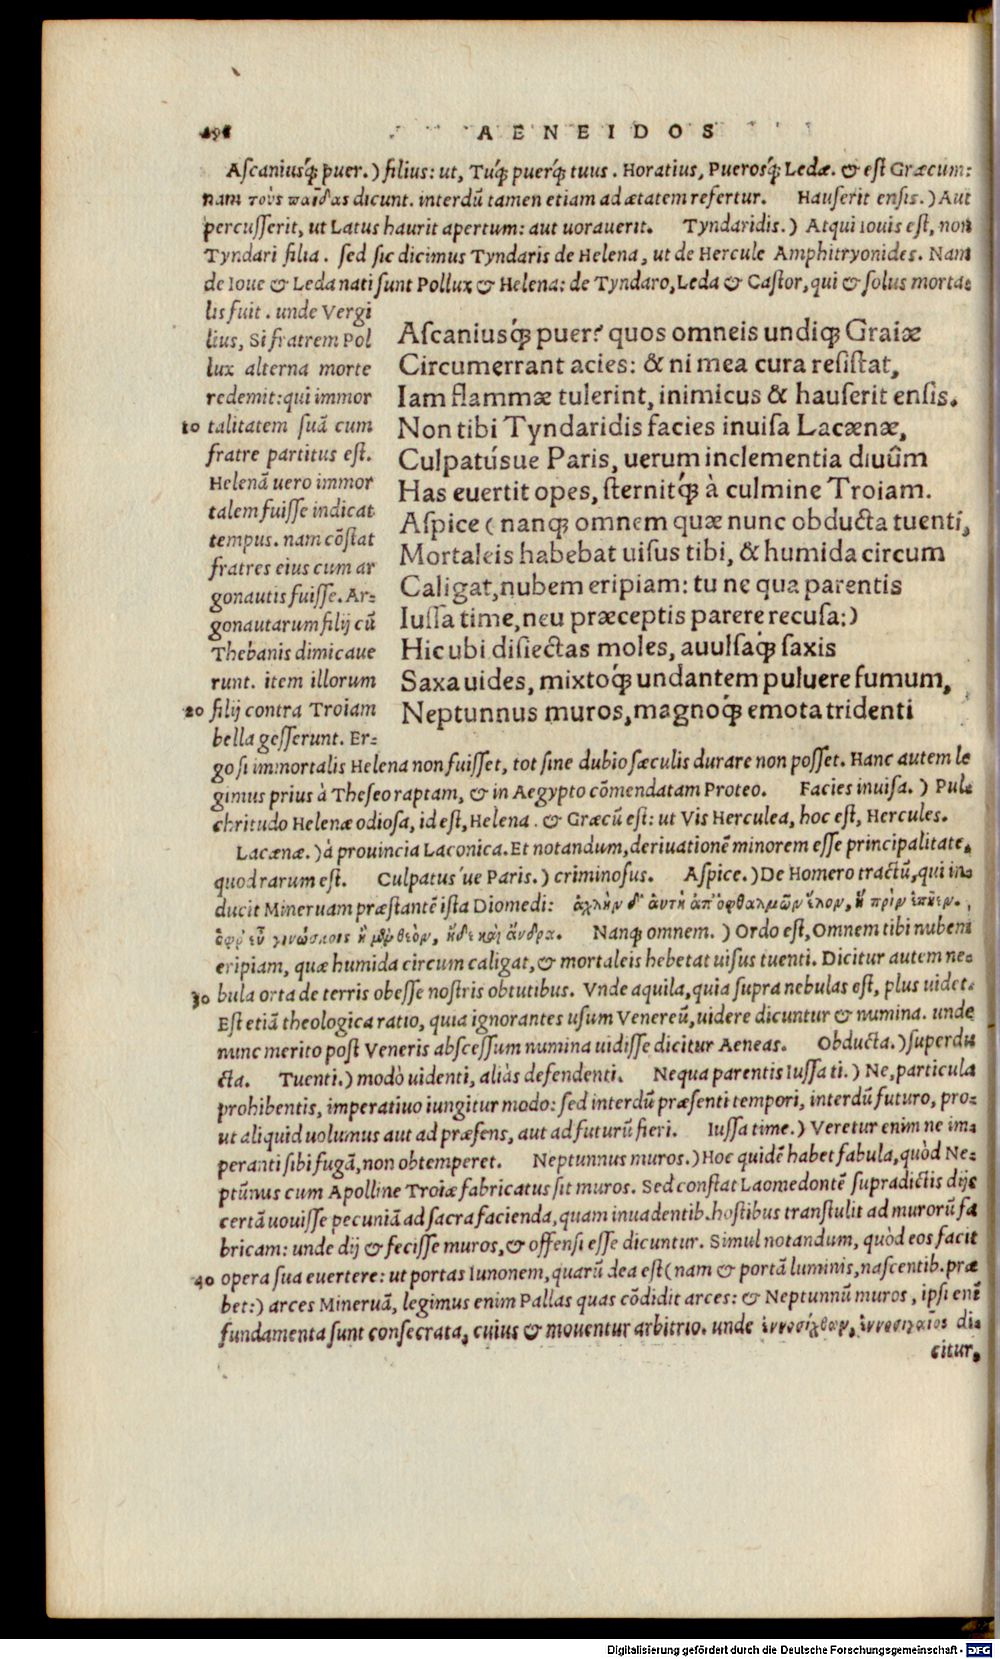 AENEIDOS
Aſcaniusq́ꝫ puer.) filius: ut, Tuq́ꝫ puerq́ꝫ tuus. Horatius, Puerosq́ꝫ Ledæ. & eſt Græcum:
nam τοὺς παῖδας dicunt. interdū tamen etiam ad ætatem refertur. Hauſerit enſis.) Aut
percuſſerit, ut Latus haurit apertum: aut uorauerit. Tyndaridis.) Atqui Iouis eſt, non
Tyndari filia. ſed ſic dicimus Tyndaris de Helena, ut de Hercule Amphitryonides. Nam
de Ioue & Leda nati ſunt Pollux & Helena: de Tyndaro, Leda & Caſtor, qui & ſolus morta-
lis fuit. unde Vergi
lius, Si fratrem Pol
lux alterna morte
redemit: qui immor
10 talitatem ſuā cum
fratre partitus eſt.
Helenā uero immor
talem fuiſſe indicat
tempus. nam cōſtat
fratres eius cum ar
gonautis fuiſſe. Ar-
gonautarum filij cū
Thebanis dimicaue
runt. item illorum
20 filij contra Troiam
bella geſſerunt. Er-
Aſcaniusq́ꝫ puer? quos omneis undiqꝫ Graiæ
Circumerrant acies: & ni mea cura reſiſtat,
Iam flammæ tulerint, inimicus & hauſerit enſis.
Non tibi Tyndaridis facies inuiſa Lacænæ,
Culpatúsue Paris, uerum inclementia diuûm
Has euertit opes, ſternitq́ꝫ à culmine Troiam.
Aſpice (nanqꝫ omnem quæ nunc obducta tuenti,
Mortaleis habebat uiſus tibi, & humida circum
Caligat, nubem eripiam: tu ne qua parentis
Iuſſa time, neu præceptis parere recuſa:)
Hic ubi diſiectas moles, auulſaqꝫ ſaxis
Saxa uides, mixtoq́ꝫ undantem puluere fumum,
Neptunnus muros, magnoq́ꝫ emota tridenti
go ſi immortalis Helena non fuiſſet, tot ſine dubio ſæculis durare non poſſet. Hanc autem le
gimus prius à Theſeo raptam, & in Aegypto cōmendatam Proteo. Facies inuiſa.) Pul-
chritudo Helenæ odioſa, id eſt, Helena. & Græcū eſt: ut Vis Herculea, hoc eſt, Hercules.
Lacænæ.) à prouincia Laconica. Et notandum, deriuationē minorem eſſe principalitate,
quod rarum eſt. Culpatus ue Paris.) criminoſus. Aſpice.) De Homero tractū, qui in-
ducit Mineruam præſtantē iſta Diomedi: ἀχλὴν δ' αὐτὴ ἀπ' ὀφθαλμῶν ἕλον, ἣ πρὶν ἐπῆεν.
ὄφρ' εὖ γινώσκοις ἢ μὲν θεὸν, ἠδὲ καὶ ἄνδρα. Nanqꝫ omnem.) Ordo eſt, Omnem tibi nubem
eripiam, quæ humida circum caligat, & mortaleis hebetat uiſus tuenti. Dicitur autem ne-
30 bula orta de terris obeſſe noſtris obtutibus. Vnde aquila, quia ſupra nebulas eſt, plus uidet.
Eſt etiā theologica ratio, quia ignorantes uſum Venereū, uidere dicuntur & numina. unde
nunc merito poſt Veneris abſceſſum numina uidiſſe dicitur Aeneas. Obducta.) ſuperdu
cta. Tuenti.) modò uidenti, aliàs defendenti. Ne qua parentis Iuſſa ti.) Ne, particula
prohibentis, imperatiuo iungitur modo: ſed interdū præſenti tempori, interdū futuro, pro-
ut aliquid uolumus aut ad præſens, aut ad futurū fieri. Iuſſa time.) Veretur enim ne im-
peranti ſibi fugā, non obtemperet. Neptunnus muros.) Hoc quidē habet fabula, quòd Ne-
ptūnus cum Apolline Troiæ fabricatus ſit muros. Sed conſtat Laomedontē ſupradictis dijs
certā uouiſſe pecuniā ad ſacra facienda, quam inuadentib. hoſtibus tranſtulit ad murorū fa
bricam: unde dij & feciſſe muros, & offenſi eſſe dicuntur. Simul notandum, quòd eos facit
40 opera ſua euertere: ut portas Iunonem, quarū dea eſt (nam & portā luminis, naſcentib. præ
bet:) arces Mineruā, legimus enim Pallas quas cōdidit arces: & Neptunnū muros, ipſi enī
fundamenta ſunt conſecrata, cuius & mouentur arbitrio. unde di-
citur,
Digitalisierung gefördert durch die Deutsche Forschungsgemeinschaft - DFG